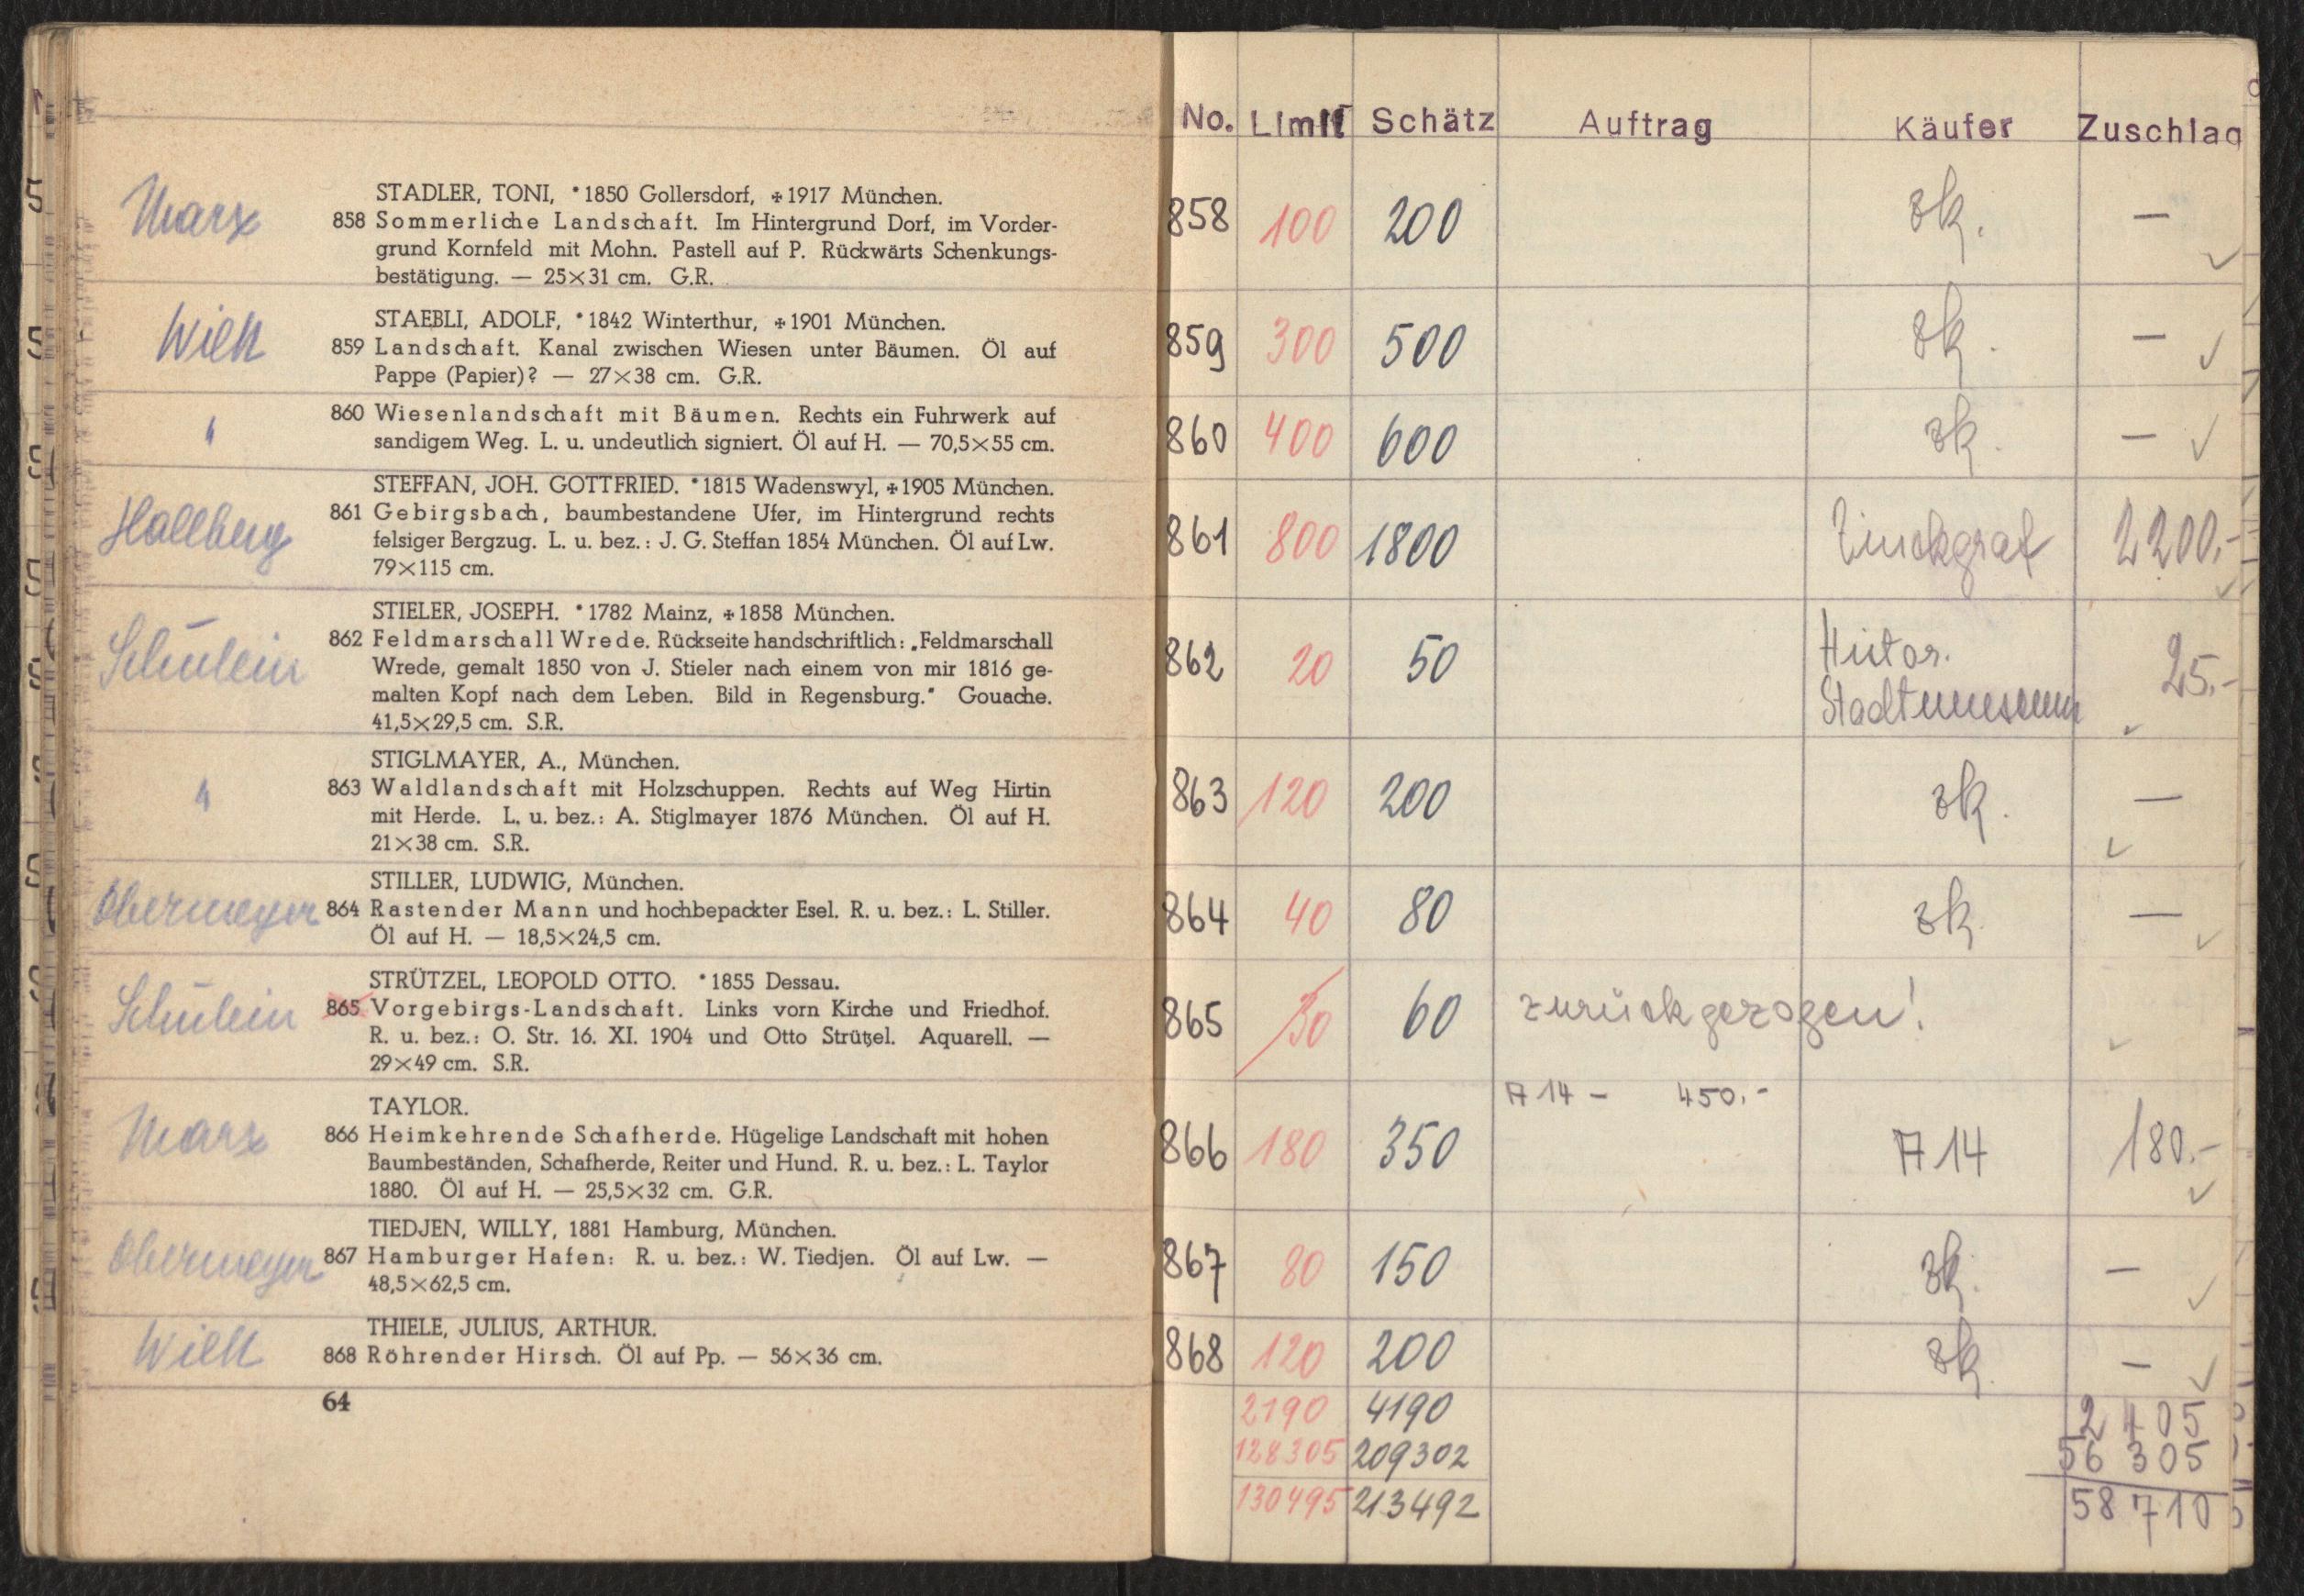 Marx
STADLER, TONI, *1850 Gollersdorf, ✠1917 München.
858 Sommerliche Landschaft. Im Hintergrund Dorf, im Vorder-
grund Kornfeld mit Mohn. Pastell auf P. Rückwärts Schenkungs-
bestätigung. — 25×31 cm. G.R.
STAEBLI, ADOLF, *1842 Winterthur, ✠1901 München.
859 Landschaft. Kanal zwischen Wiesen unter Bäumen. Öl auf
Pappe (Papier)? — 27×38 cm. G.R.
"
860 Wiesenlandschaft mit Bäumen. Rechts ein Fuhrwerk auf
sandigem Weg. L. u. undeutlich signiert. Öl auf H. — 70,5×55 cm.
Hallberg
STEFFAN, JOH. GOTTFRIED. *1815 Wadenswyl, ✠1905 München.
861 Gebirgsbach, baumbestandene Ufer, im Hintergrund rechts
felsiger Bergzug. L. u. bez.: J. G. Steffan 1854 München. Öl auf Lw.
79×115 cm.
Schülein
STIELER, JOSEPH. *1782 Mainz, ✠1858 München.
862 Feldmarschall Wrede. Rückseite handschriftlich: „Feldmarschall
Wrede, gemalt 1850 von J. Stieler nach einem von mir 1816 ge-
malten Kopf nach dem Leben. Bild in Regensburg." Gouache.
41,5×29,5 cm. S.R.
"
STIGLMAYER, A., München.
863 Waldlandschaft mit Holzschuppen. Rechts auf Weg Hirtin
mit Herde. L. u. bez.: A. Stiglmayer 1876 München. Öl auf H.
21×38 cm. S.R.
Obermeyer
STILLER, LUDWIG, München.
864 Rastender Mann und hochbepackter Esel. R. u. bez.: L. Stiller.
Öl auf H. — 18,5×24,5 cm.
Schülein
STRÜTZEL, LEOPOLD OTTO. *1855 Dessau.
865 Vorgebirgs-Landschaft. Links vorn Kirche und Friedhof.
R. u. bez.: O. Str. 16. XI. 1904 und Otto Strützel. Aquarell. —
29×49 cm. S.R.
Marx
TAYLOR.
866 Heimkehrende Schafherde. Hügelige Landschaft mit hohen
Baumbeständen, Schafherde, Reiter und Hund. R. u. bez.: L. Taylor
1880. Öl auf H. — 25,5×32 cm. G.R.
Obermeyer
TIEDJEN, WILLY, 1881 Hamburg, München.
867 Hamburger Hafen: R. u. bez.: W. Tiedjen. Öl auf Lw. —
48,5×62,5 cm.
THIELE, JULIUS, ARTHUR.
868 Röhrender Hirsch. Öl auf Pp. — 56×36 cm.
64
No. Limit Schätz Auftrag Käufer Zuschlag
858 100 200 zk. —
859 300 500 zk. —
860 400 600 zk. —
861 800 1800 Zinckgraf 2200.-
862 20 50 Histor. Stadtmuseum 25.-
863 120 200 zk. —
864 40 80 zk. —
865 30 60 zurückgezogen!
A 14 - 450.-
866 180 350 A 14 180.-
867 80 150 zk. —
868 120 200 zk. —
2190 4190 2 405
128305 209302 56 305
130495 213492 58 710